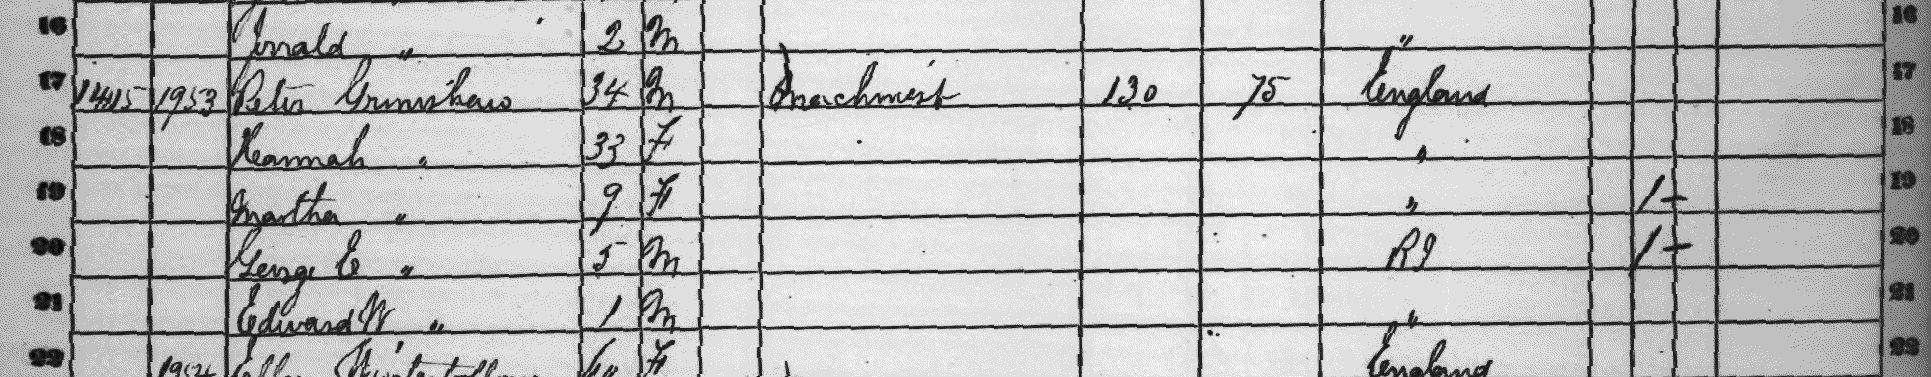 16 Jerrald " 2 M " 16
17 1415 1953 Peter Grimshaw 34 M Machinest 130 75 England 17
18 Hannah " 33 F " 18
19 Martha " 9 F " 1 19
20 George E " 5 M RI 1 20
21 Edward W " 1 M " 21
22 1954 F England 22